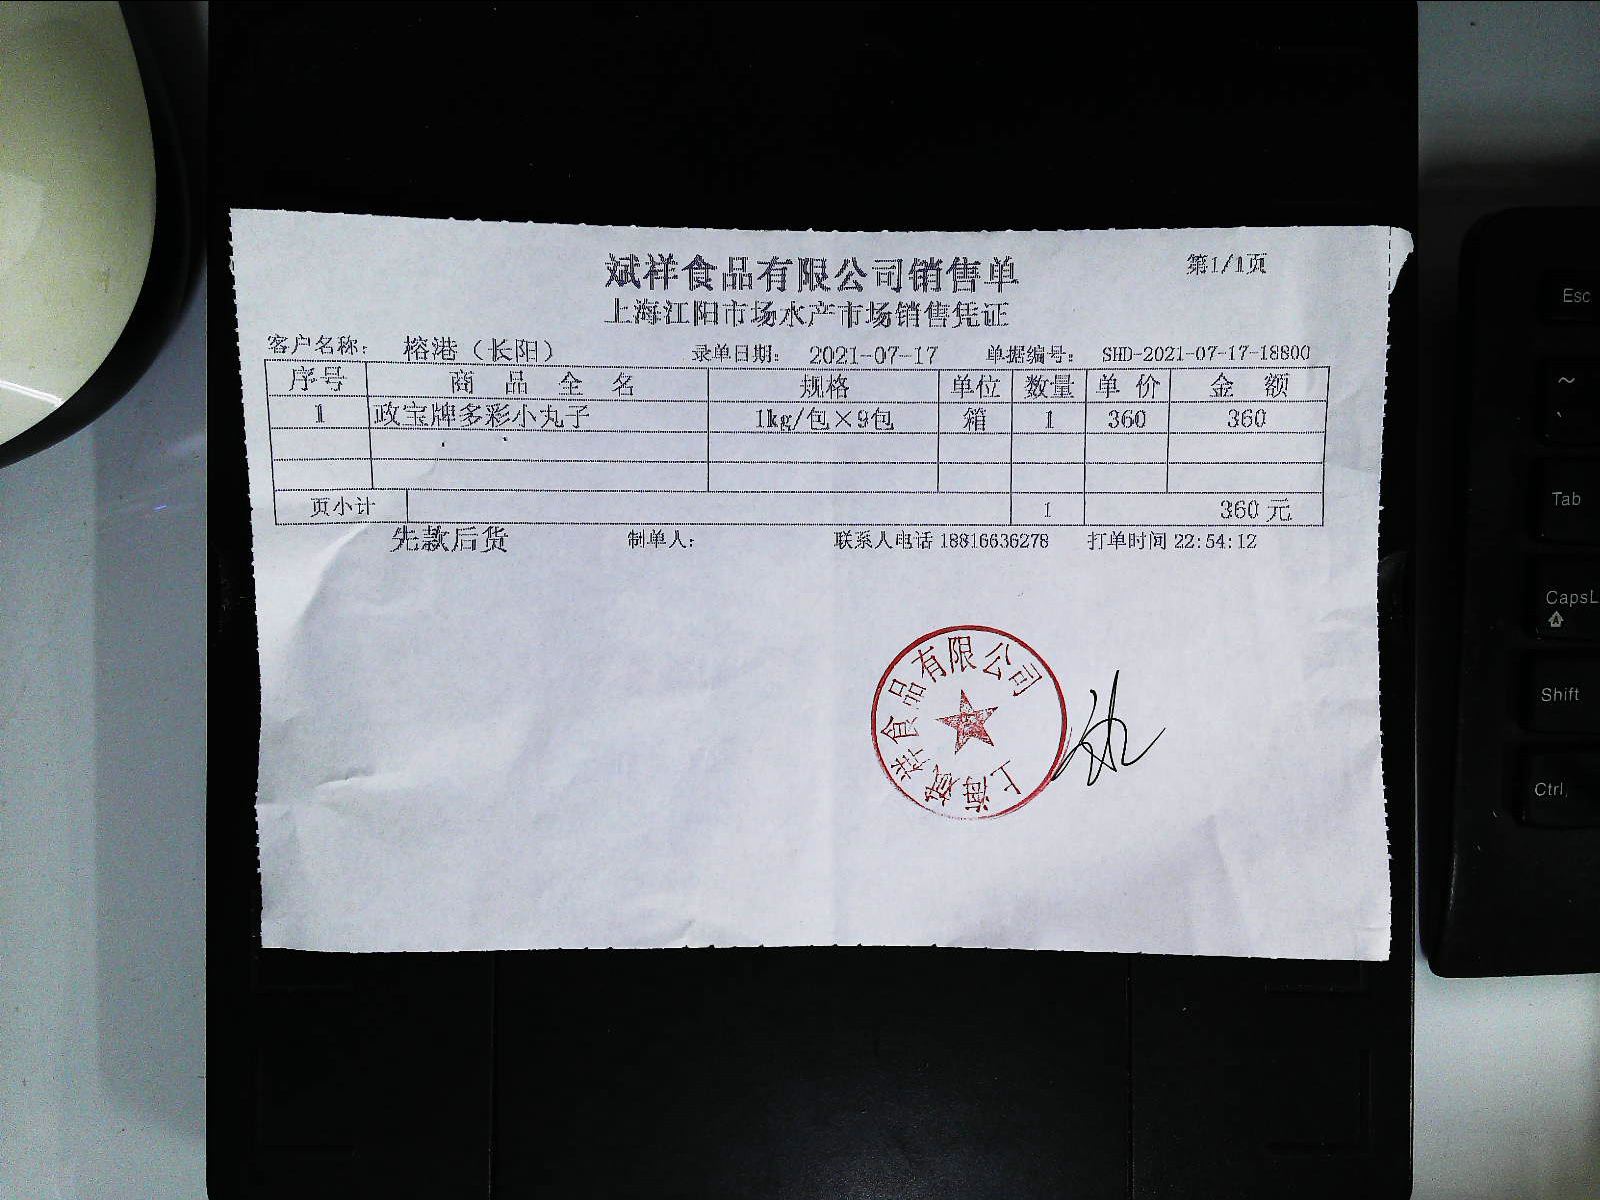 斌祥食品有限公司销售单
第1/1页
上海江阳市场水产市场销售凭证
客户名称： 榕港（长阳） 录单日期： 2021-07-17 单据编号： SHD-2021-07-17-18800
序号 商品全名 规格 单位 数量 单价 金额
1 政宝牌多彩小丸子 1kg/包×9包 箱 1 360 360
页小计 1 360元
先款后货 制单人： 联系人电话 18816636278 打单时间 22:54:12
上海斌祥食品有限公司
Esc
~
`
Tab
CapsL
Shift
Ctrl